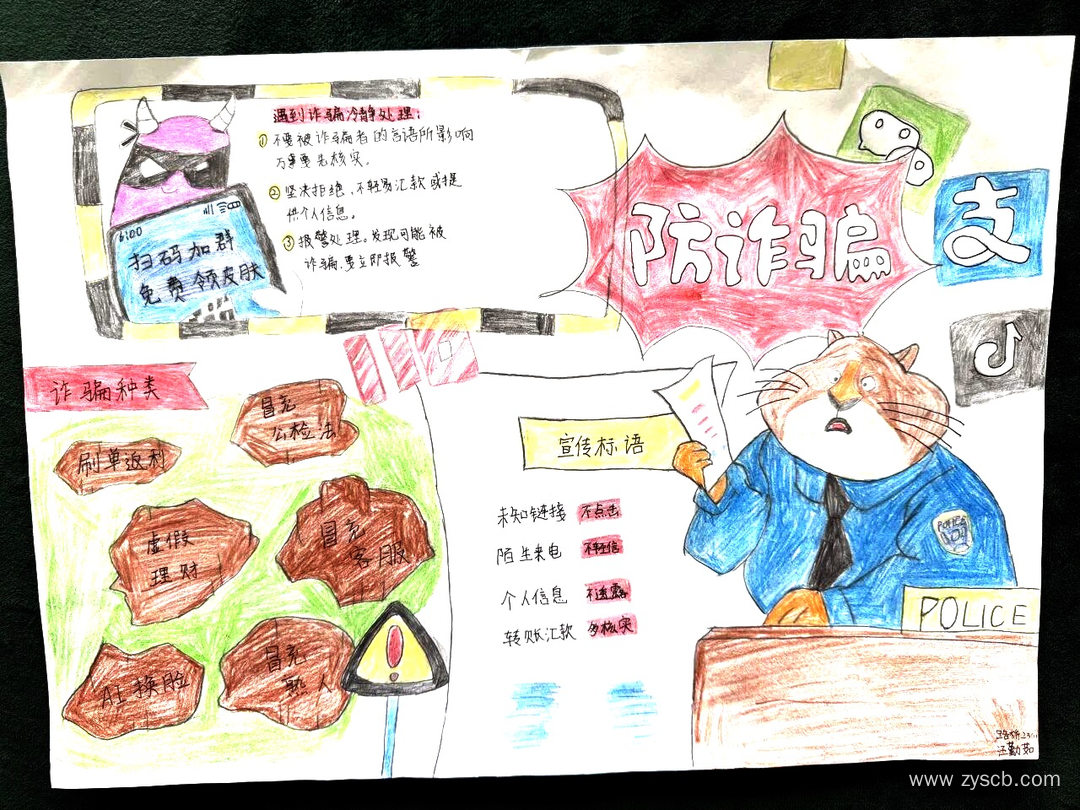 遇到诈骗冷静处理:
①不要被诈骗者的言语所影响
万事要先核实。
②坚决拒绝、不轻易汇款或提
供个人信息。
③报警处理。发现可能被
诈骗,要立即报警
6:00
扫码加群
免费领皮肤
防诈骗
支
诈骗种类
冒充
公检法
刷单返利
虚假
理财
冒充
客服
AI换脸
冒充
熟人
宣传标语
未知链接 不点击
陌生来电 不轻信
个人信息 不透露
转账汇款 多核实
POLICE
POLICE
汪勤茹
www.zyscb.com